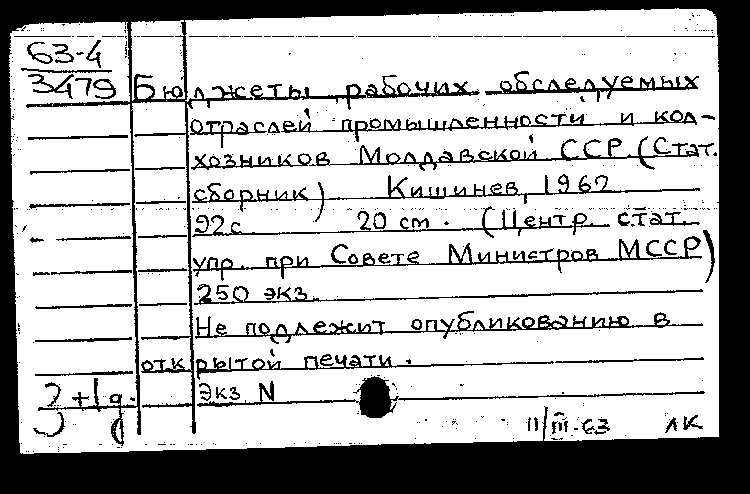 63-4
3479
Бюджеты рабочих обследуемых
отраслей промышленности и кол-
хозников Молдавской ССР (Стат.
сборник) Кишинев, 1962
92с 20 cm. (Центр. стат.
упр. при Совете Министров МССР)
250 экз.
Не подлежит опубликованию в
открытой печати.
Экз N
3+1д.
11/III-63 ЛК